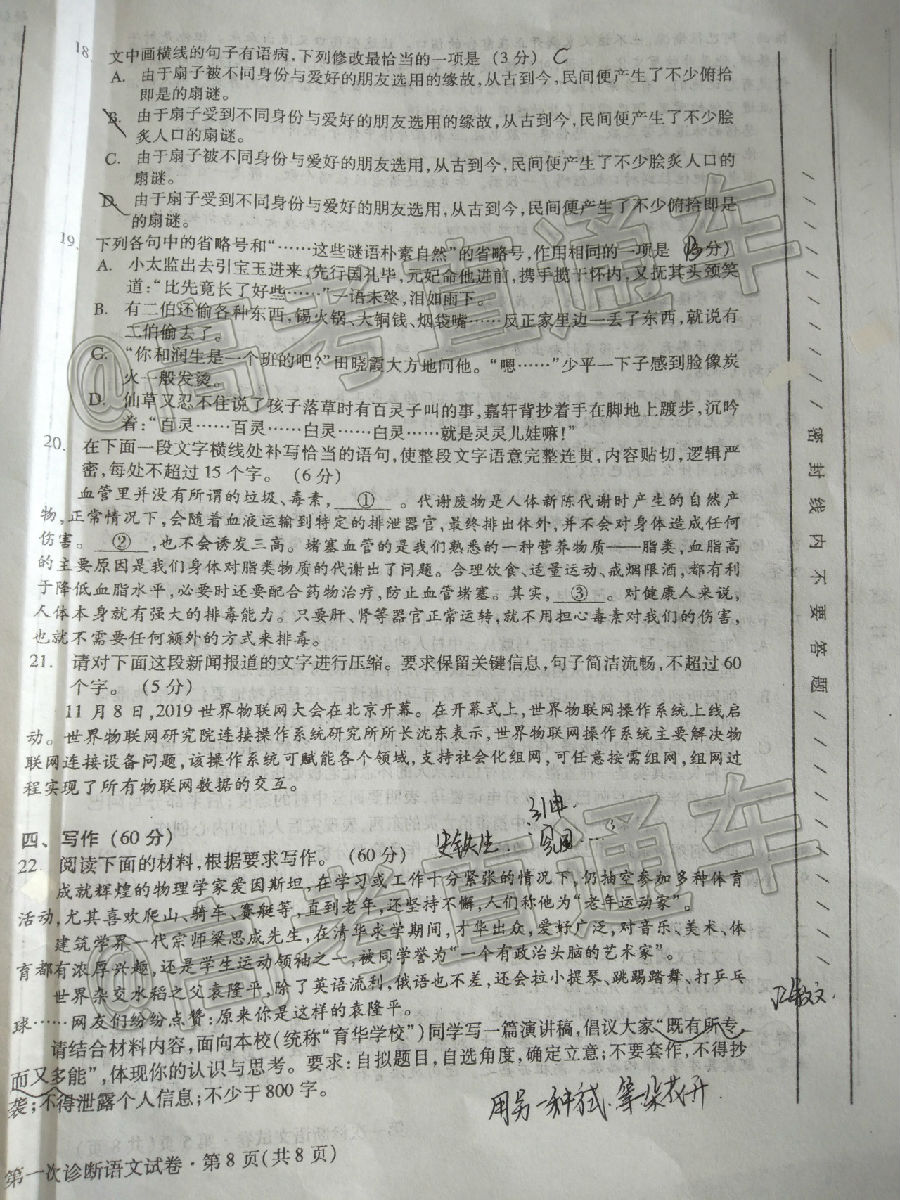 18. 文中画横线的句子有语病,下列修改最恰当的一项是 (3分) C
A. 由于扇子被不同身份与爱好的朋友选用的缘故,从古到今,民间便产生了不少俯拾
即是的扇谜。
B. 由于扇子受到不同身份与爱好的朋友选用的缘故,从古到今,民间便产生了不少脍
炙人口的扇谜。
C. 由于扇子被不同身份与爱好的朋友选用,从古到今,民间便产生了不少脍炙人口的
扇谜。
D. 由于扇子受到不同身份与爱好的朋友选用,从古到今,民间便产生了不少俯拾即是
的扇谜。
19. 下列各句中的省略号和“……这些谜语朴素自然”的省略号,作用相同的一项是 分)
A. 小太监出去引宝玉进来,先行国礼毕,元妃命他进前,携手揽于怀内,又抚其头颈笑
道:“比先竟长了好些……”一语未终,泪如雨下。
B. 有二伯还偷各种东西,锡火锅、大铜钱、烟袋嘴……反正家里边一丢了东西,就说有
二伯偷去了。
C. “你和润生是一个班的吧?”田晓霞大方地问他。“嗯……”少平一下子感到脸像炭
火一般发烫。
D. 仙草又忍不住说了孩子落草时有百灵子叫的事,嘉轩背抄着手在脚地上踱步,沉吟
着:“百灵……百灵……白灵……白灵……就是灵灵儿娃嘛!”
20. 在下面一段文字横线处补写恰当的语句,使整段文字语意完整连贯,内容贴切,逻辑严
密,每处不超过15个字。 (6分)
血管里并没有所谓的垃圾、毒素, ① 。代谢废物是人体新陈代谢时产生的自然产
物,正常情况下,会随着血液运输到特定的排泄器官,最终排出体外,并不会对身体造成任何
伤害。 ② ,也不会诱发三高。堵塞血管的是我们熟悉的一种营养物质——脂类,血脂高
的主要原因是我们身体对脂类物质的代谢出了问题。合理饮食、适量运动、戒烟限酒,都有利
于降低血脂水平,必要时还要配合药物治疗,防止血管堵塞。其实, ③ 。对健康人来说,
人体本身就有强大的排毒能力。只要肝、肾等器官正常运转,就不用担心毒素对我们的伤害,
也就不需要任何额外的方式来排毒。
21. 请对下面这段新闻报道的文字进行压缩。要求保留关键信息,句子简洁流畅,不超过60
个字。 (5分)
11月8日,2019世界物联网大会在北京开幕。在开幕式上,世界物联网操作系统上线启
动。世界物联网研究院连接操作系统研究所所长沈东表示,世界物联网操作系统主要解决物
联网连接设备问题,该操作系统可赋能各个领域,支持社会化组网,可任意按需组网,组网过
程实现了所有物联网数据的交互。
引申
四、写作 (60分) 史铁生.
22. 阅读下面的材料,根据要求写作。 (60分)
成就辉煌的物理学家爱因斯坦,在学习或工作十分紧张的情况下,仍抽空参加多种体育
活动,尤其喜欢爬山、骑车、赛艇等,直到老年,还坚持不懈,人们称他为“老年运动家”。
建筑学界一代宗师梁思成先生,在清华求学期间,才华出众,爱好广泛,对音乐、美术、体
育都有浓厚兴趣,还是学生运动领袖之一,被同学誉为“一个有政治头脑的艺术家”。
世界杂交水稻之父袁隆平,除了英语流利,俄语也不差,还会拉小提琴、跳踢踏舞、打乒乓
球……网友们纷纷点赞:原来你是这样的袁隆平。
请结合材料内容,面向本校(统称“育华学校”)同学写一篇演讲稿,倡议大家“既有所专,
而又多能”,体现你的认识与思考。要求:自拟题目,自选角度,确定立意;不要套作,不得抄
袭;不得泄露个人信息;不少于800字。
用另一种方式.等一朵花开
第一次诊断语文试卷·第8页(共8页)
密封线内不要答题
@高考直通车
@高考直通车